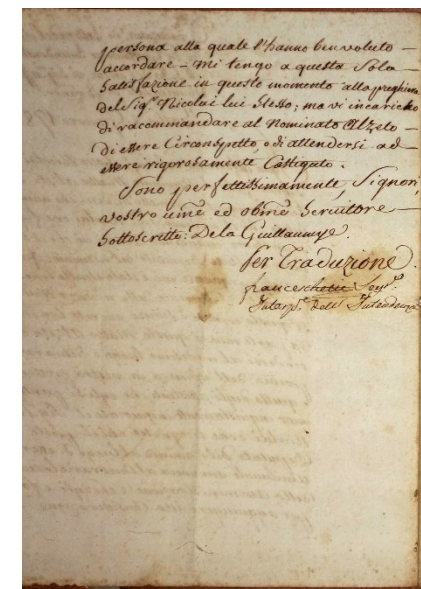 persona alla quale l'hanno benvoluto —
accordare – mi tengo a questa Sola —
Satisfazione in questo momento alla preghiera
del Sigr. Nicolai lui Stesso; ma vi incaricho
di raccommandare al Nominato Alzeto —
di essere Circonspetto, o di attendersi ad —
essere rigorosamente Castigato.
Sono perfettissimamente, Signori,
vostro ume ed obme Servitore —
Sottoscritto: De la Guillaumye.
Per Traduzione.
franceschetti
Interpe. dell' Intendenza